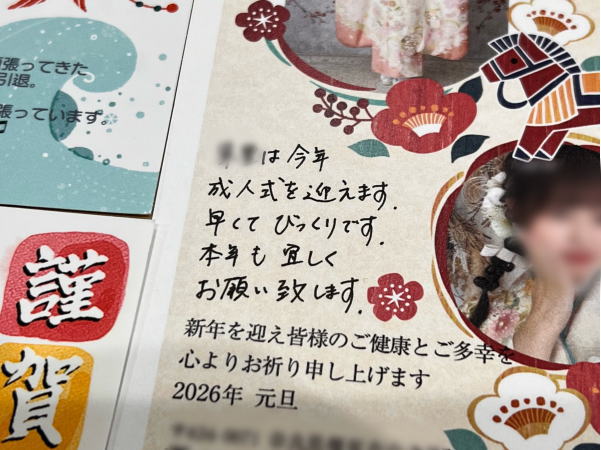 張ってきた
引退。
張っています。
は今年
成人式を迎えます.
早くて びっくりです.
本年も 宜しく
お願い致します.
新年を迎え皆様のご健康とご多幸を
心よりお祈り申し上げます
2026年 元旦
謹
賀